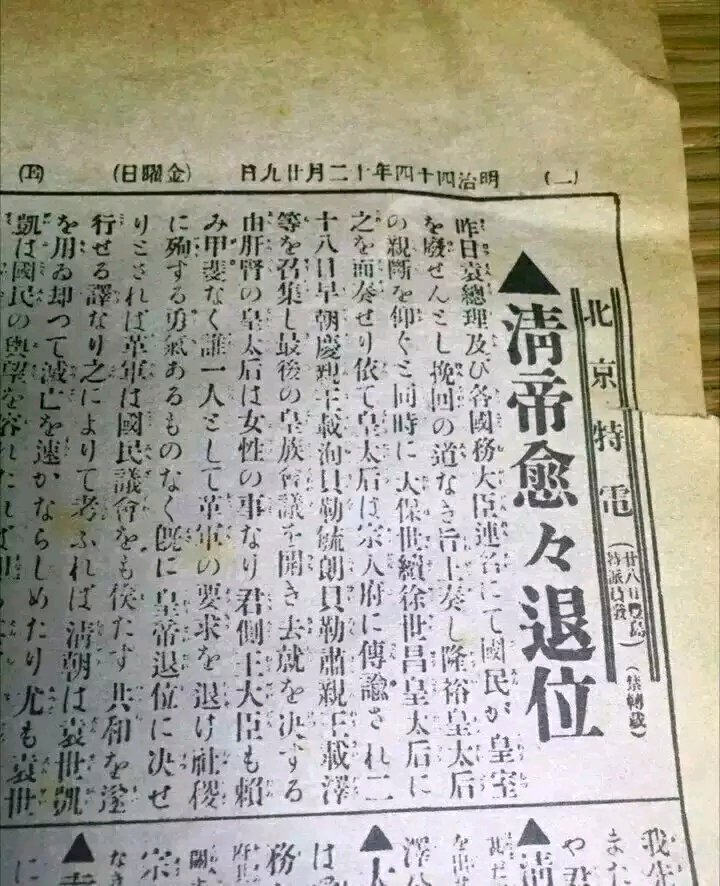 (二) 明治四十四年十二月廿九日 (金曜日)
北京特電 (廿八日豐島特派員發) (禁轉載)
▲清帝愈々退位
昨日袁總理及び各國務大臣連名にて國民が皇室
を廢せんとし挽回の道なき旨上奏し隆裕皇太后
の親斷を仰ぐと同時に太保世續徐世昌皇太后に
之を面奏せり依て皇太后は宗人府に傳諭され二
十八日早朝慶親王載洵貝勒毓朗貝勒肅親王載澤
等を召集し最後の皇族會議を開き去就を決する
由肝腎の皇太后は女性の事なり君側王大臣も賴
み甲斐なく誰一人として革軍の要求を退け社稷
に殉する勇氣あるものなく既に皇帝退位に決せ
りとされば革軍は國民議會をも俟たす共和を遂
行せる譯なり之によりて考ふれば清朝は袁世凱
を用ゐ却つて滅亡を速かならしめたり尤も袁世
凱は國民の輿望を容れたれば
また
や
▲清
を出
澤公
▲大
は
務
宗
▲
に